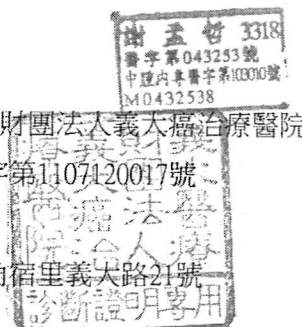 謝孟哲 3318
醫字第043253號
中國內專醫字第103010號
M0432538
財團法人義大癌治療醫院
字第1107120017號
角宿里義大路21號
診斷證明專用